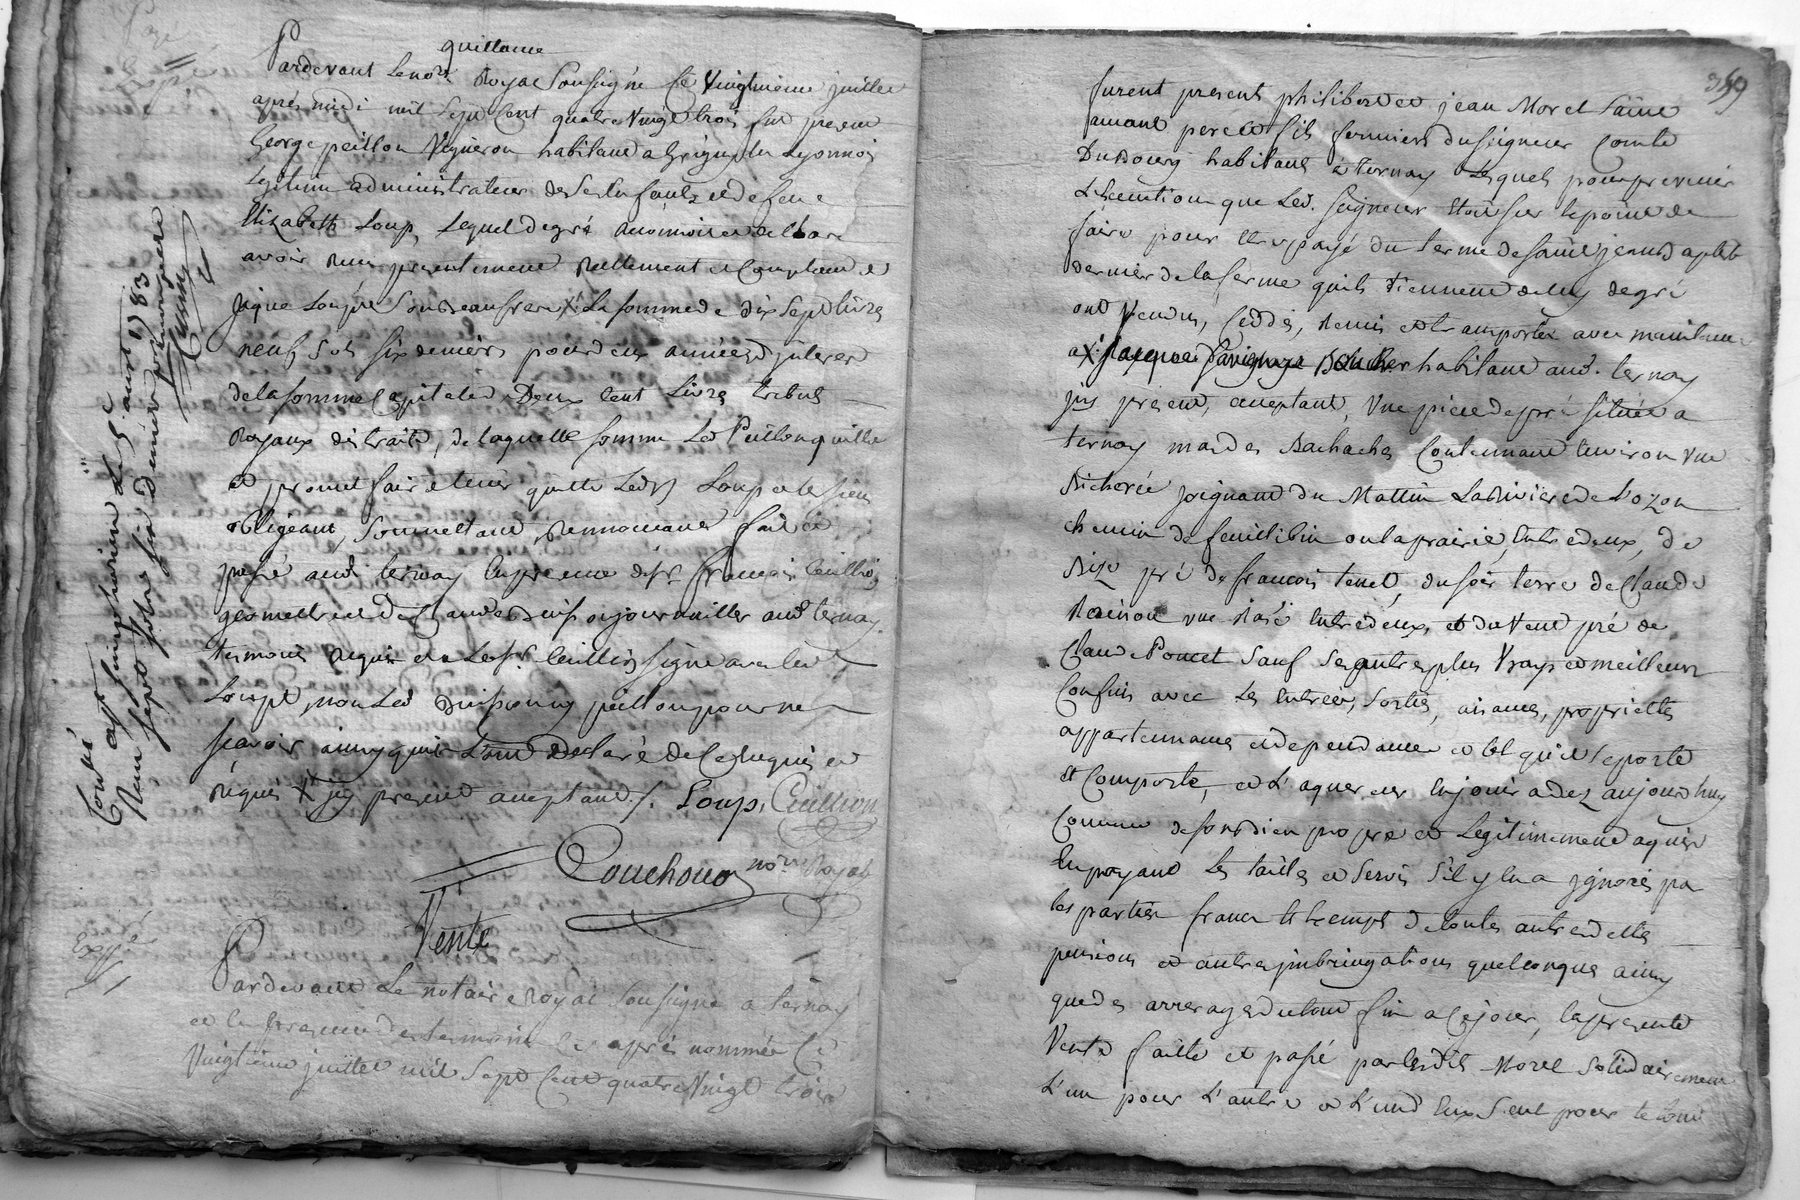 quittance
Pardevant le no.re Royal soussigné le vingtieme juillet
après midi mil sept cent quatre vingt trois fut present
George peillon Vigneron habitant a Grigny en Lyonnois
Legitime administrateur de ses enfants et de feue
Elizabeth Loup, Lequel de gré a reconnu et declaré
avoir reçu presentement reellement et comptant de
Loup son beau frere X la somme de dix sept livres
neuf sols six deniers pour deux années d'interet
de la somme capitale de Deux cent livres tributs
Royaux distraits, de laquelle somme Led Peillon quitte
et promet faire tenir quitte Led. Loup et les siens
obligeant, soumettant, Rennoncant fait et
passé aud. ternay en presence de s.r françois Cuillion
geomettre et de Claude journaillier aud ternay
temoins requis et Led s.r Cuillion signé avec led
Loup, non Led ny peillon pour ne
scavoir ainsy qu'ils l'ont declaré de ce enquis et
requis X icy present acceptant ./. Loup, Cuillion
Couchoud no.re Royal
Controllé
a st simphorien le 5 aout 1783
Reçu sept sols six deniers
Vente
Expié
Pardevant Le notaire Royal soussigné a ternay
et en presence des temoins cy apres nommés Le
Vingtieme juillet mil sept Cent quatre Vingt trois
359
furent presents philibert et jean Morel Saint
amant pere et fils fermiers du seigneur Comte
Dubourg habitants à ternay Lesquels pour prevenir
L'execution que Led. seigneur etoit sur le point de
faire pour etre payé du terme de saint jean baptiste
dernier de la ferme qu'ils tiennent de luy de gré
ont Vendu, Ceddé, Remis et transporté avec maintenue
a X jacques Boucher habitant aud. ternay
icy present, acceptant, Une piece de pré située a
ternay mas des Bachaches Contennant environ une
Bicherée joignant du Mattin La Riviere de L'ozon
chemin de feuillibin ou la prairie, entredeux, de
Bize pré de francois tenet, du soir terre de Claude
une Raze entredeux, et du Vent pré de
Claude Poncet sauf ses autres plus Vrays et meilleurs
Confins avec ses entrées, sorties, aisances, proprietés
appartennances et dependances et tel qu'il se porte
et Comporte, et L'aquereur en jouira dez aujourd'huy
Comme de son bien propre et Legitimement aquis
En payant les tailles et servis s'il y en a ignorés par
les parties franc et exempt de toutes autres dettes
pensions et autres imbringations quelconques ainsy
que des arrerages du tout fin a Ce jour, la presente
Vente faitte et passé par lesdits Morel solidairement
L'un pour L'autre et L'un d'Eux seul pour le tout